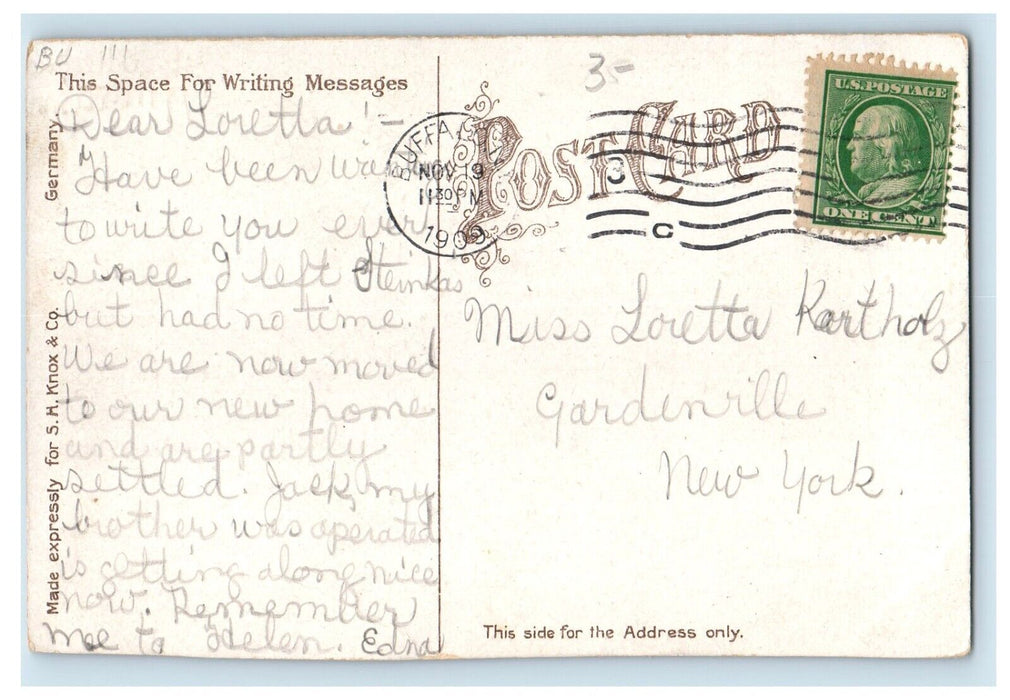 BU 111
3-
This Space For Writing Messages
Dear Loretta!-
Have been
to write you ever
since I left Steinkas
but had no time.
We are now moved
to our new home
and are partly
settled. Jack, my
brother was operated
is getting along nice
now. Remember
me to Helen. Edna
Germany
Made expressly for S. H. Knox & Co.
POST CARD
BUFFA
NOV 19
11 30 PM
1909
3
C
U.S. POSTAGE
ONE CENT
Miss Loretta Kartholz
Gardenville
New York.
This side for the Address only.